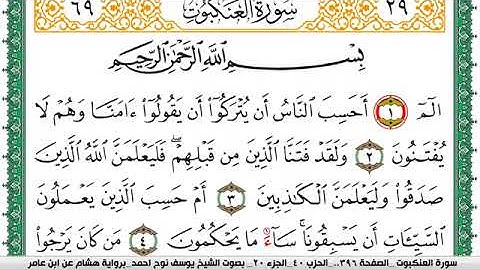 ٢٩ سورة العنكبوت ٦٩
بِسْمِ اللَّهِ الرَّحْمَٰنِ الرَّحِيمِ
الٓمٓ ١ أَحَسِبَ النَّاسُ أَن يُتْرَكُوٓا۟ أَن يَقُولُوٓا۟ ءَامَنَّا وَهُمْ لَا
يُفْتَنُونَ ٢ وَلَقَدْ فَتَنَّا الَّذِينَ مِن قَبْلِهِمْ ۖ فَلَيَعْلَمَنَّ اللَّهُ الَّذِينَ
صَدَقُوا۟ وَلَيَعْلَمَنَّ الْكَٰذِبِينَ ٣ أَمْ حَسِبَ الَّذِينَ يَعْمَلُونَ
السَّيِّـَٔاتِ أَن يَسْبِقُونَا ۚ سَآءَ مَا يَحْكُمُونَ ٤ مَن كَانَ يَرْجُوا۟
سورة العنكبوت_الصفحة ٣٩٦_الحزب ٤٠_الجزء ٢٠_ بصوت الشيخ يوسف نوح احمد_برواية هشام عن ابن عامر